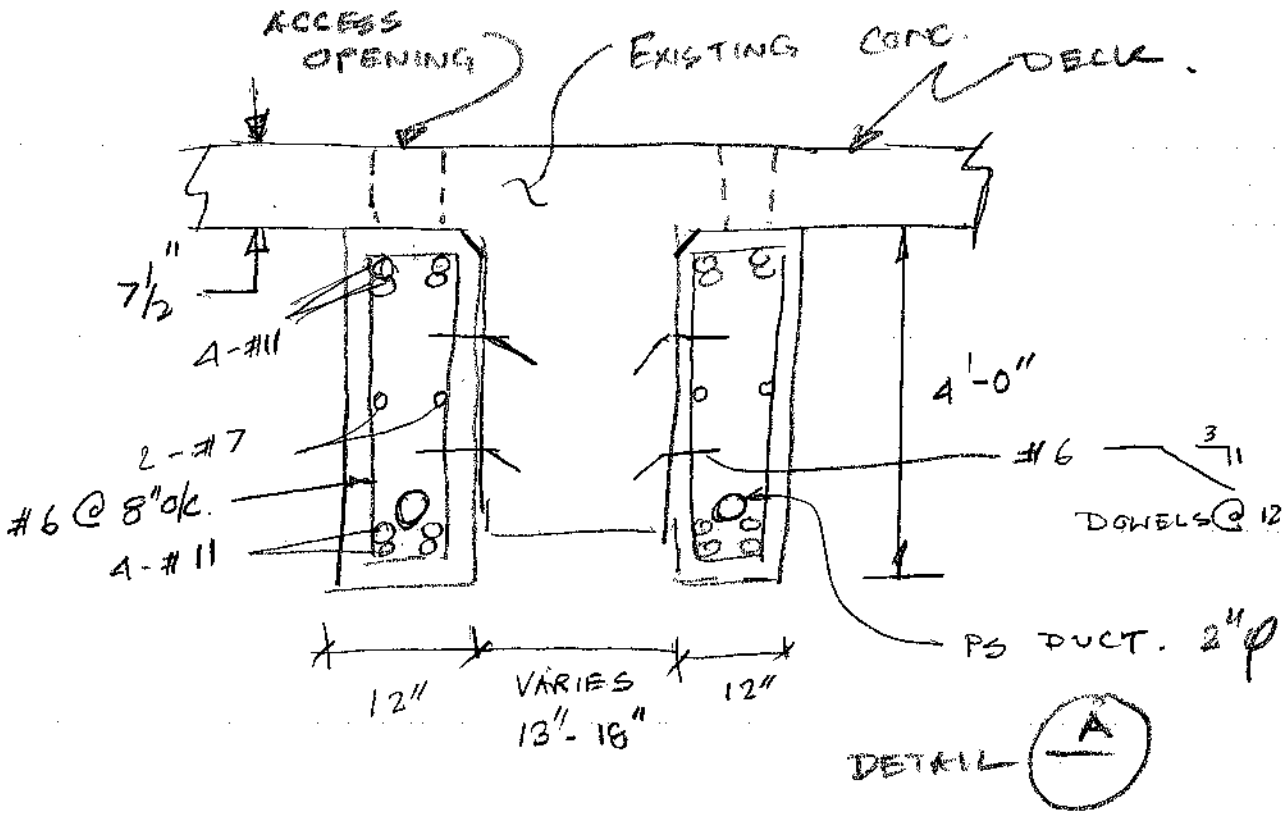 ACCESS
OPENING
EXISTING CONC.
DECK.
7 1/2"
4-#11
2-#7
#6 @ 8" o/c.
4-#11
4'-0"
#6
3
1
DOWELS @ 12
PS DUCT. 2"φ
12"
VARIES
13"-18"
12"
DETAIL A